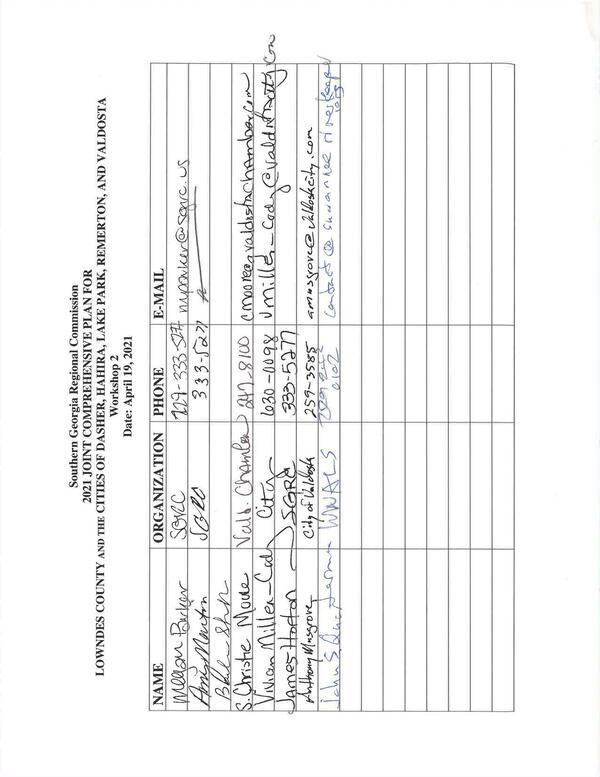 Southern Georgia Regional Commission
2021 JOINT COMPREHENSIVE PLAN FOR
LOWNDES COUNTY AND THE CITIES OF DASHER, HAHIRA, LAKE PARK, REMERTON, AND VALDOSTA
Workshop 2
Date: April 19, 2021
NAME ORGANIZATION PHONE E-MAIL
SGRC 229-333-5277
SGRC 333-5277
S. Christie Moore Vald. Chamber 247-8100 cmoore@valdostachamber.com
Vivian Miller-Cody City 630-0098 vmiller-cody@valdostacity.com
James Horton SGRC 333-5277
Anthony Musgrove City of Valdosta 259-3585 amusgrove@valdostacity.com
John S. WWALS contact@suwannee riverkeeper